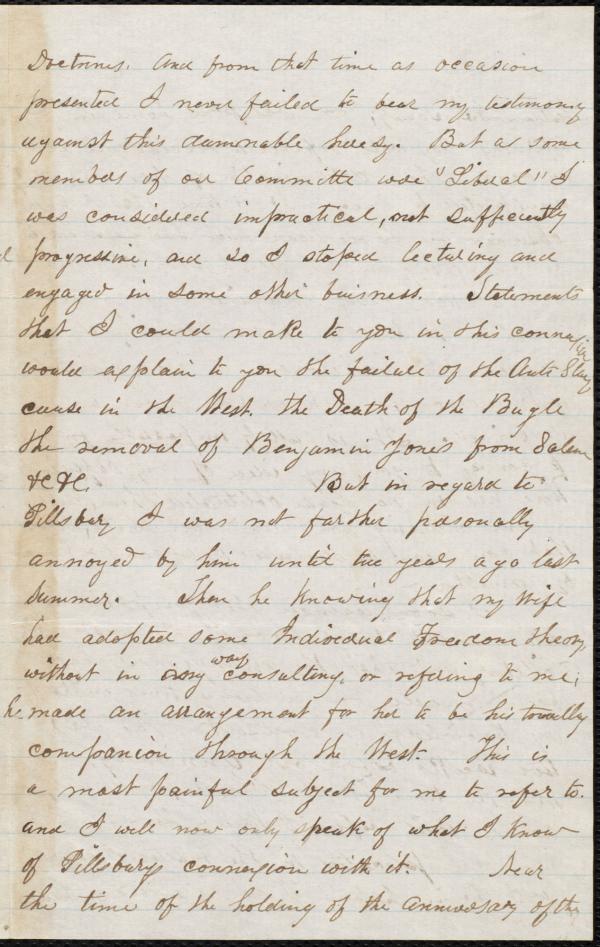 Doctrines. And from that time as occasion
presented I never failed to bear my testimony
against this damnable heresy. But as some
members of our Committe were "Liberal" I
was considered impractical, not sufficiently
progressive, and so I stoped lecturing and
engaged in some other buisness. Statements
that I could make to you in this connexion
would explain to you the failure of the Anti Slavy
cause in the West. the Death of the Bugle
the removal of Benjamin Jones from Salem
&c &c. But in regard to
Pillsbury I was not farther personally
annoyed by him until two years ago last
Summer. Then he knowing that my wife
had adopted some Individual Freedom theory,
without in any way consulting, or refering to me;
he made an arrangement for her to be his
companion through the West. This is
a most painful subject for me to refer to.
and I will now only speak of what I know
of Pillsburys connexion with it. Near
the time of the holding of the anniversary of the